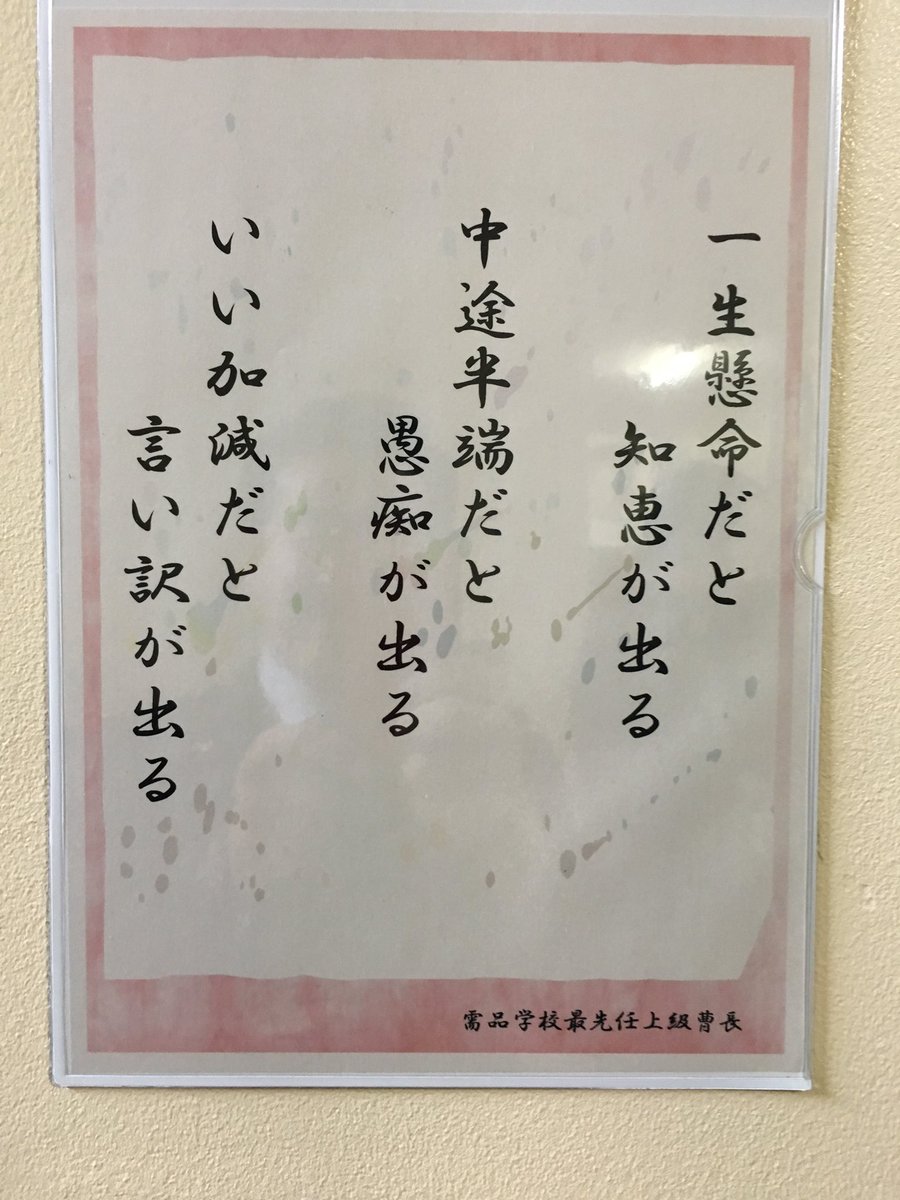 一生懸命だと
知恵が出る
中途半端だと
愚痴が出る
いい加減だと
言い訳が出る
需品学校最先任上級曹長